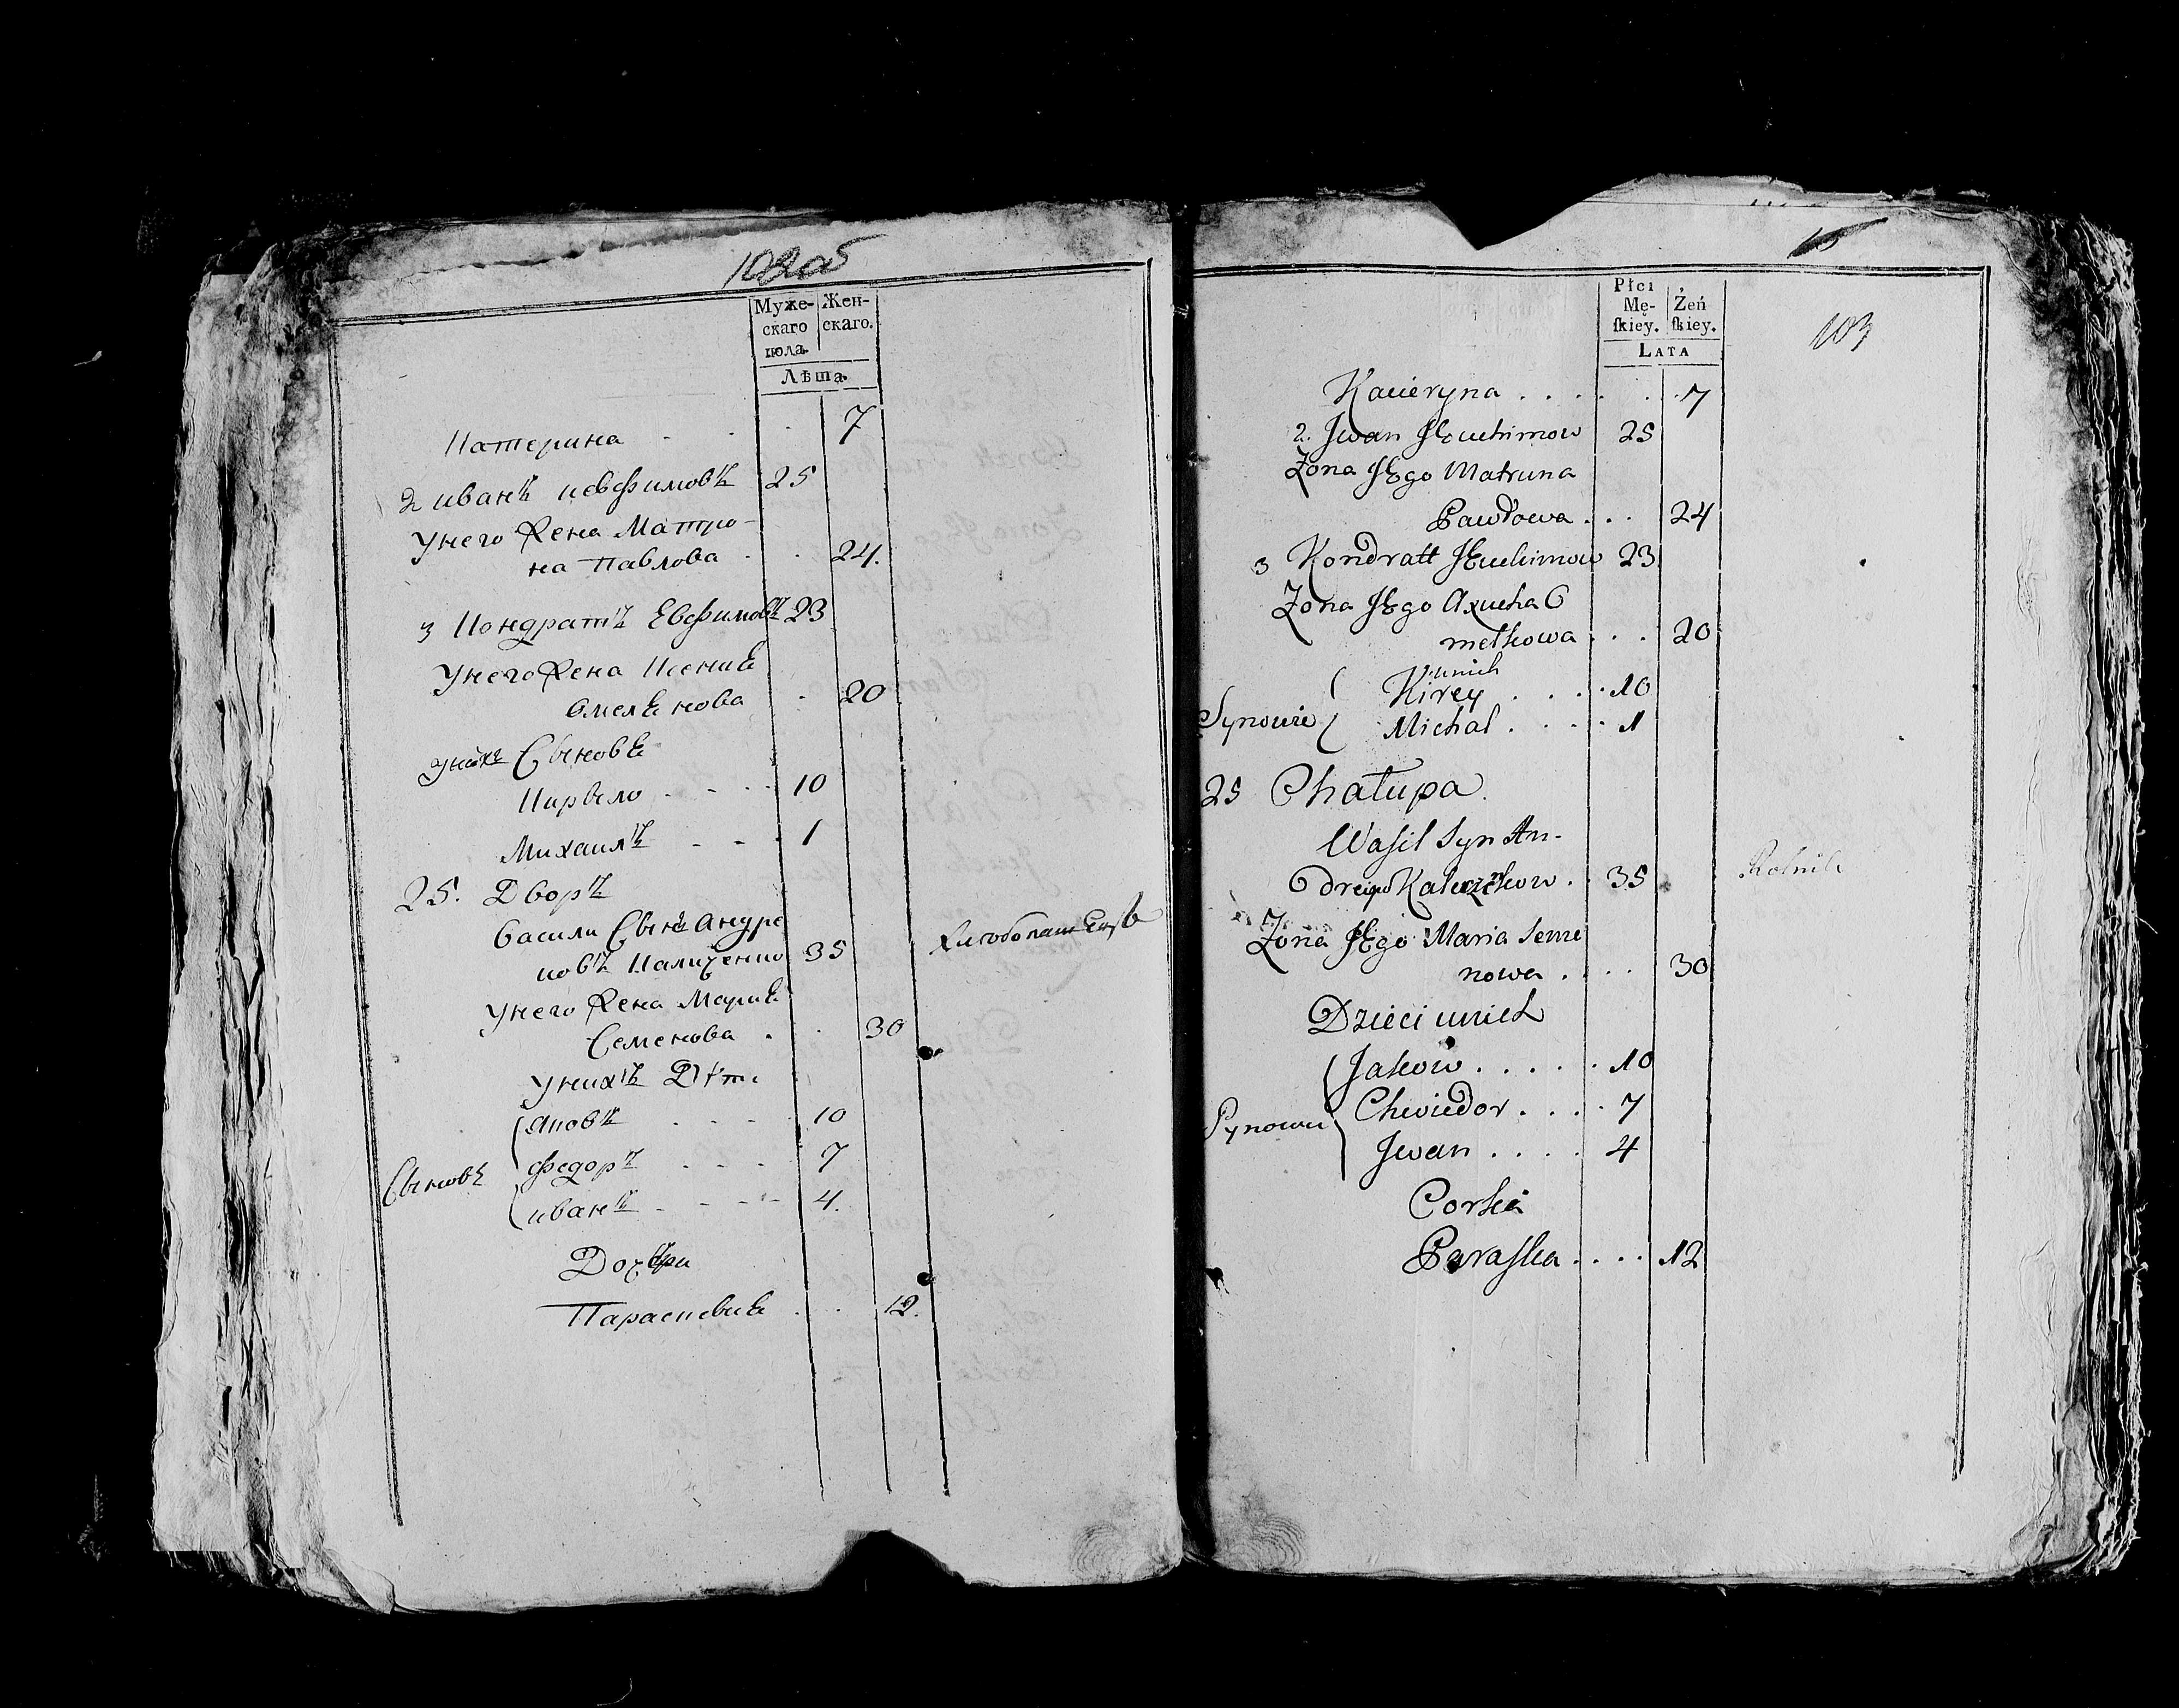 102об
Муже-
скаго
пола.
Жен-
скаго.
Лѣта.
Катерина . . . 7
2 иванъ иевфимовъ 25
унего Жена Матро-
на Павлова . . 24.
3 Кондратъ Евфимовъ 23
унего Жена Ксения
Омелянова . 20
унихъ Сыновя
Кирыло . . . . 10
Михаилъ . . . 1
25. Дворъ
Васили Сынъ Андре
ковъ Каличенко 35
унего Жена Мария
Семенова . . 30
унихъ Дѣти
Сыновъ
Яковъ . . . . 10
Федоръ . . . . 7
иванъ . . . . 4.
Дочери
Параскевия . . 12.
103
Płci
Mę-
ſkiey.
Żeń
ſkiey.
LATA
Kacieryna . . . . . . 7
2. Jwan Jeuchimow 25
Zona Jego Matruna
Pawłowa . . . 24
3 Kondratt Jeuchimow 23
Zona Jego Axucha O
melkowa . . . 20
unich
Synowie
Kirey . . . . 10
Michał . . . . 1
25 Chałupa.
Wasil Syn An-
dreipo . 35
Rolnik
Zona Jego Maria Seme
nowa . . . . 30
Dzieci unich
Synowie
Jakow . . . . . 10
Chwiedor . . . . 7
Jwan . . . . 4
Corka
Paraska . . . . 12